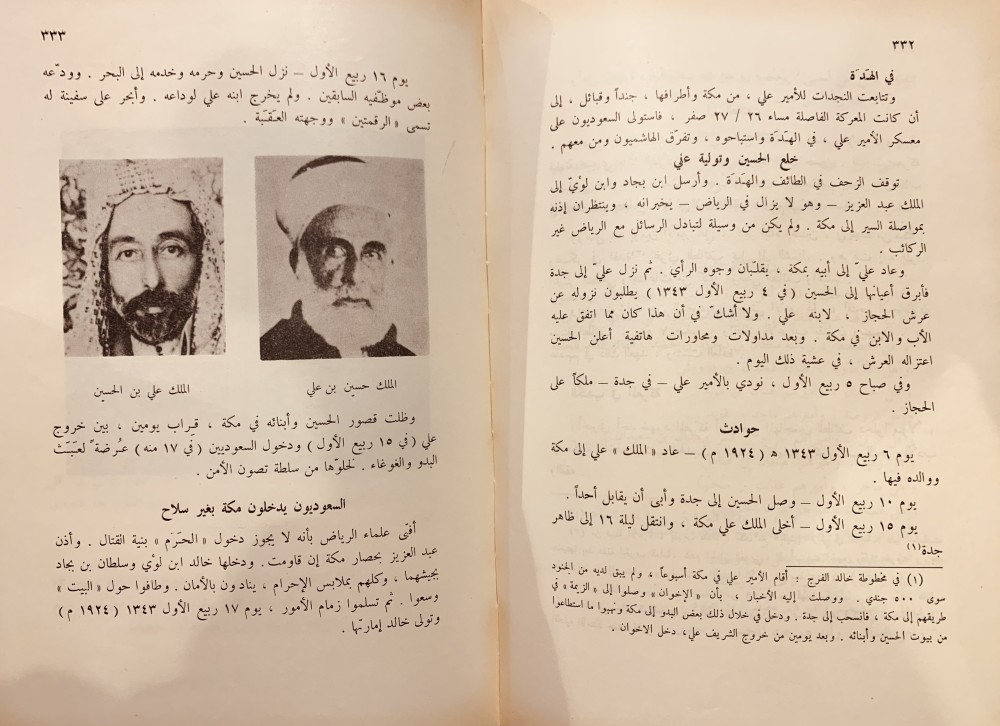 ٣٣٢
في الهَدَة
وتتابعت النجدات للأمير علي ، من مكة وأطرافها ، جنداً وقبائل ، إلى
أن كانت المعركة الفاصلة مساء ٢٦ / ٢٧ صفر ، فاستولى السعوديون على
معسكر الأمير علي ، في الهَدَة واستباحوه ، وتفرّق الهاشميون ومن معهم .
خلع الحسين وتولية علي
توقف الزحف في الطائف والهَدَة . وأرسل ابن بجاد وابن لؤيّ إلى
الملك عبد العزيز – وهو لا يزال في الرياض – يخبرانه ، وينتظران إذنه
بمواصلة السير إلى مكة . ولم يكن من وسيلة لتبادل الرسائل مع الرياض غير
الركائب .
وعاد عليّ إلى أبيه بمكة ، يقلّبان وجوه الرأي . ثم نزل عليّ إلى جدة
فأبرق أعيانها إلى الحسين (في ٤ ربيع الأول ١٣٤٣) يطلبون نزوله عن
عرش الحجاز ، لابنه علي . ولا أشكّ في أن هذا كان مما اتفق عليه
الأب والابن في مكة . وبعد مداولات ومحاورات هاتفية أعلن الحسين
اعتزاله العرش ، في عشية ذلك اليوم .
وفي صباح ٥ ربيع الأول ، نودي بالأمير علي – في جدة – ملكاً على
الحجاز .
حوادث
يوم ٦ ربيع الأول ١٣٤٣ ه (١٩٢٤ م) – عاد « الملك » علي إلى مكة
ووالده فيها .
يوم ١٠ ربيع الأول – وصل الحسين إلى جدة وأبى أن يقابل أحداً .
يوم ١٥ ربيع الأول – أخلى الملك علي مكة ، وانتقل ليلة ١٦ إلى ظاهر
جدة(١)
(١) في مخطوطة خالد الفرج : أقام الأمير علي في مكة أسبوعاً ، ولم يبق لديه من الجنود
سوى ٥٠٠ جندي . ووصلت إليه الأخبار ، بأن « الإخوان » وصلوا إلى « الزيمة » في
طريقهم إلى مكة ، فانسحب إلى جدة . ودخل في خلال ذلك بعض البدو إلى مكة ونهبوا ما استطاعوا
من بيوت الحسين وأبنائه . وبعد يومين من خروج الشريف علي، دخل الاخوان .
٣٣٣
يوم ١٦ ربيع الأول – نزل الحسين وحرمه وخدمه إلى البحر . وودّعه
بعض موظّفيه السابقين . ولم يخرج ابنه علي لوداعه . وأبحر على سفينة له
تسمى « الرقمتين » ووجهته العَقَبة .
الملك حسين بن علي
الملك علي بن الحسين
وظلت قصور الحسين وأبنائه في مكة ، قراب يومين ، بين خروج
علي (في ١٥ ربيع الأول) ودخول السعوديين (في ١٧ منه) عُرضةً لعَبَث
البدو والغوغاء . لخلوّها من سلطة تصون الأمن .
السعوديون يدخلون مكة بغير سلاح
أفتى علماء الرياض بأنه لا يجوز دخول « الحَرَم » بنية القتال . وأذن
عبد العزيز بحصار مكة إن قاومت . ودخلها خالد ابن لؤي وسلطان بن بجاد
بجيشهما ، وكلهم بملابس الإحرام ، ينادون بالأمان . وطافوا حول « البيت »
وسعوا . ثم تسلموا زمام الأمور ، يوم ١٧ ربيع الأول ١٣٤٣ (١٩٢٤ م)
وتولى خالد إمارتها .